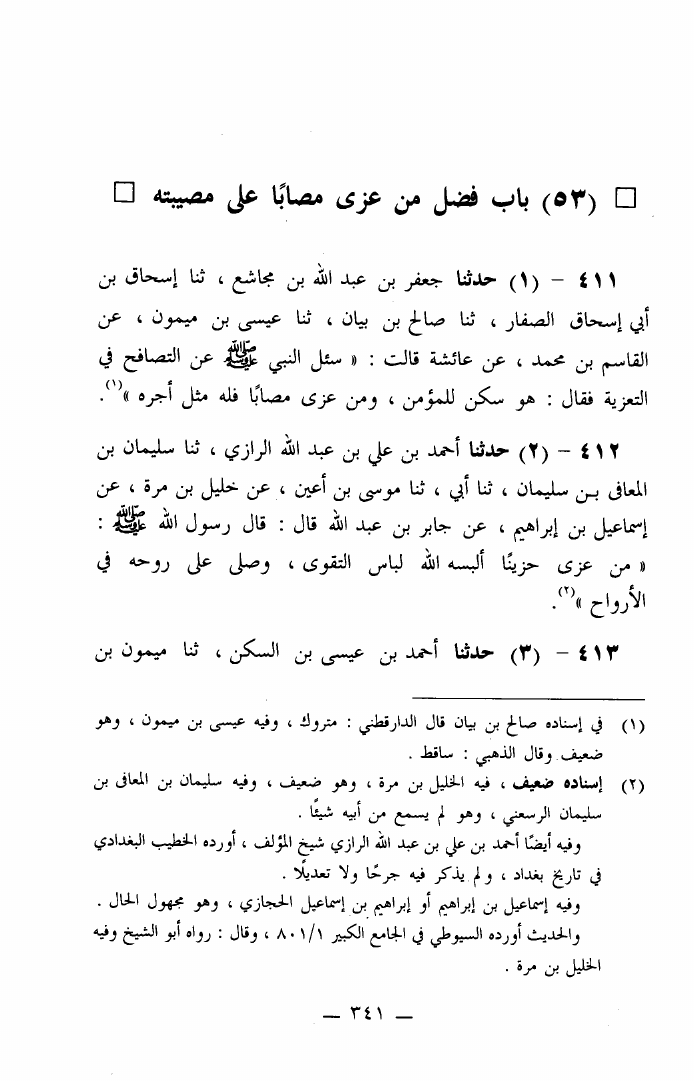 □ (٥٣) باب فضل من عزى مصابًا على مصيبته □
٤١١ – (١) حدثنا جعفر بن عبد الله بن مجاشع ، ثنا إسحاق بن
أبي إسحاق الصفار ، ثنا صالح بن بيان ، ثنا عيسى بن ميمون ، عن
القاسم بن محمد ، عن عائشة قالت : « سئل النبي ﷺ عن التصافح في
التعزية فقال : هو سكن للمؤمن ، ومن عزى مصابًا فله مثل أجره »(١).
٤١٢ – (٢) حدثنا أحمد بن علي بن عبد الله الرازي ، ثنا سليمان بن
المعافى بن سليمان ، ثنا أبي ، ثنا موسى بن أعين ، عن خليل بن مرة ، عن
إسماعيل بن إبراهيم ، عن جابر بن عبد الله قال : قال رسول الله ﷺ :
« من عزى حزينًا ألبسه الله لباس التقوى ، وصلى على روحه في
الأرواح »(٢).
٤١٣ – (٣) حدثنا أحمد بن عيسى بن السكن ، ثنا ميمون بن
(١) في إسناده صالح بن بيان قال الدارقطني : متروك ، وفيه عيسى بن ميمون ، وهو
ضعيف وقال الذهبي : ساقط .
(٢) إسناده ضعيف ، فيه الخليل بن مرة ، وهو ضعيف ، وفيه سليمان بن المعافى بن
سليمان الرسعني ، وهو لم يسمع من أبيه شيئًا .
وفيه أيضًا أحمد بن علي بن عبد الله الرازي شيخ المؤلف ، أورده الخطيب البغدادي
في تاريخ بغداد ، ولم يذكر فيه جرحًا ولا تعديلًا .
وفيه إسماعيل بن إبراهيم أو إبراهيم بن إسماعيل الحجازي ، وهو مجهول الحال .
والحديث أورده السيوطي في الجامع الكبير ٨٠١/١ ، وقال : رواه أبو الشيخ وفيه
الخليل بن مرة .
— ٣٤١ —